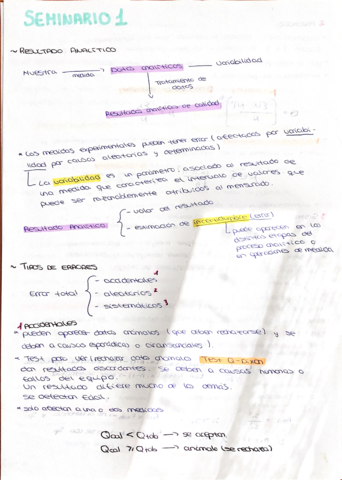 SEMINARIO 1
~ RESULTADO ANALÍTICO
MUESTRA medida Datos analíticos variabilidad
Tratamiento de
datos
Resultados analíticos de calidad
• Las medidas experimentales pueden tener error (afectadas por variabi-
lidad por causas aleatorias y determinadas)
La variabilidad es un parámetro, asociado al resultado de
una medida que caracteriza el intervalo de valores que
puede ser razonablemente atribuidos al mensurando.
Resultado Analítico - valor de resultado
- estimación de
puede aparecer en las
distintas etapas del
proceso analítico o
en operaciones de medida
~ TIPOS DE ERRORES
Error total - accidentales 1
- aleatorios 2
- sistemáticos 3
1 ACCIDENTALES
• pueden aparecer datos anómalos (que deben rechazarse) y se
deben a causas esporádicas o
- Test para ver/rechazar dato anómalo TEST Q-DIXON
dan resultados discordantes. Se deben a causas humanas o
fallos del equipo.
Un resultado difiere mucho de los demás.
Se detectan fácil.
• sólo afectan a una o dos medidas
Qcal < Qtab → se aceptan
Qcal > Qtab → anómalo (se rechaza)